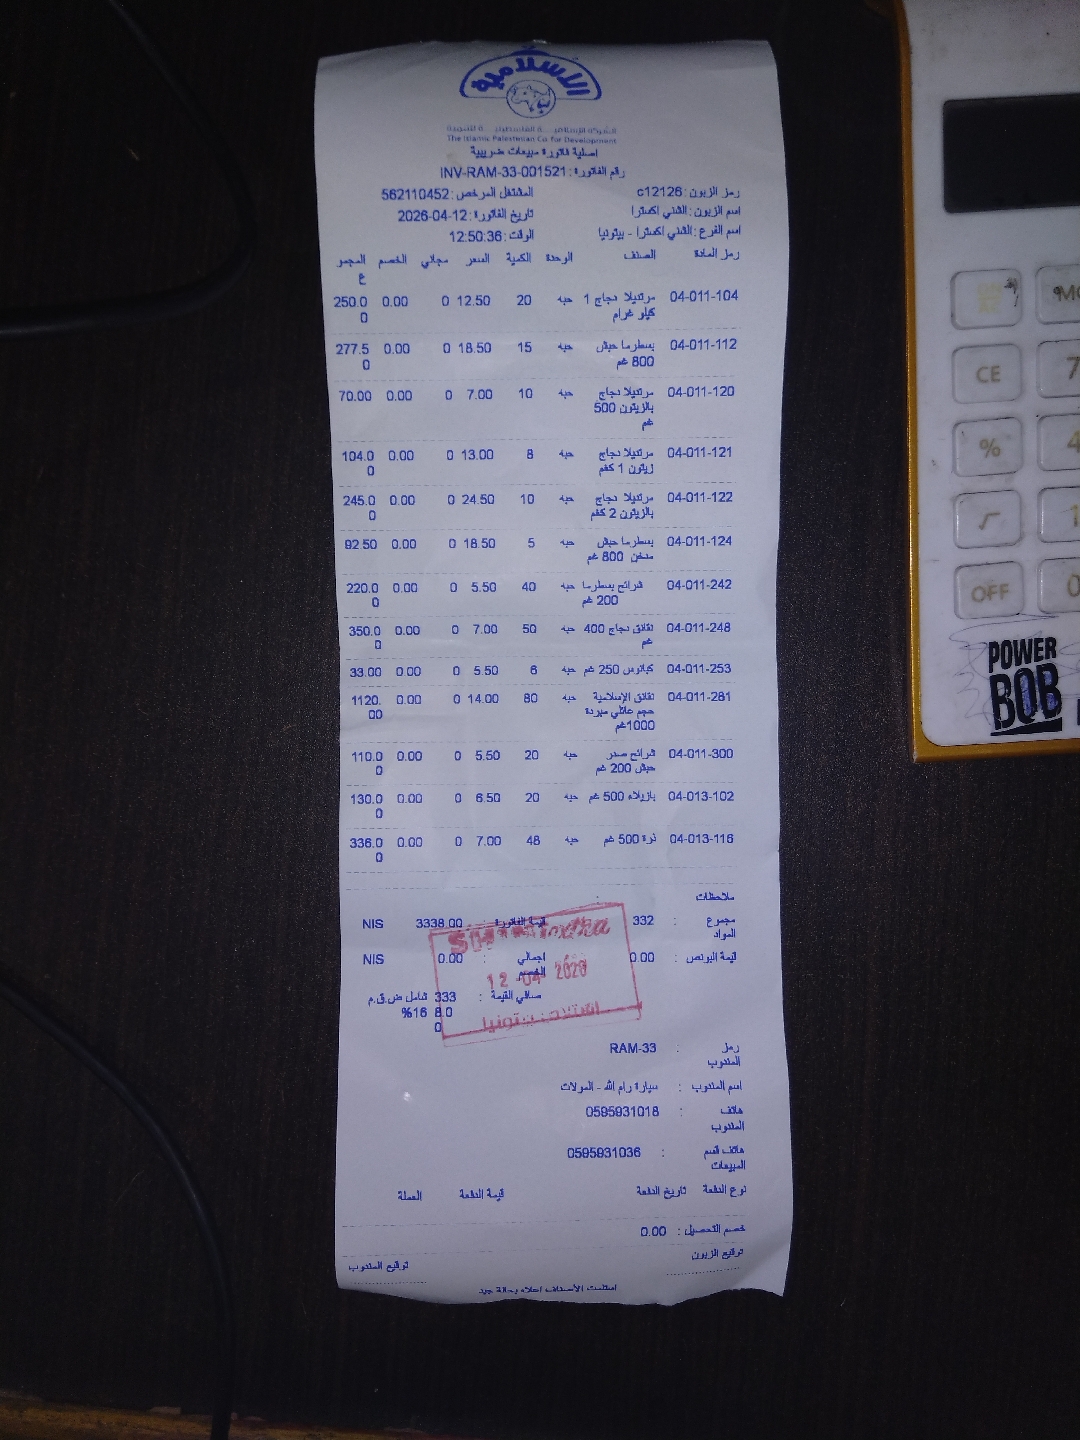 الإسلامية
The Islamic Palestinian Co. for Development
اصلية فاتورة مبيعات ضريبية
رقم الفاتورة: INV-RAM-33-001521
رمز الزبون: c12126 المشتغل المرخص: 562110452
اسم الزبون: الشني اكسترا تاريخ الفاتورة: 2026-04-12
اسم الفرع: الشني اكسترا - بيتونيا الوقت: 12:50:36
رمز المادة الصنف الوحدة الكمية السعر مجاني الخصم المجمو
ع
04-011-104 مرتديلا دجاج 1 حبه 20 12.50 0 0.00 250.0
كيلو غرام 0
04-011-112 بسطرما حبش حبه 15 18.50 0 0.00 277.5
800 غم 0
04-011-120 مرتديلا دجاج حبه 10 7.00 0 0.00 70.00
بالزيتون 500
غم
04-011-121 مرتديلا دجاج حبه 8 13.00 0 0.00 104.0
زيتون 1 كغم 0
04-011-122 مرتديلا دجاج حبه 10 24.50 0 0.00 245.0
بالزيتون 2 كغم 0
04-011-124 بسطرما حبش حبه 5 18.50 0 0.00 92.50
مدخن 800 غم
04-011-242 شرائح بسطرما حبه 40 5.50 0 0.00 220.0
200 غم 0
04-011-248 نقانق دجاج 400 حبه 50 7.00 0 0.00 350.0
غم 0
04-011-253 كبانوس 250 غم حبه 6 5.50 0 0.00 33.00
04-011-281 نقانق الإسلامية حبه 80 14.00 0 0.00 1120.
حجم عائلي مبردة 00
1000غم
04-011-300 شرائح صدر حبه 20 5.50 0 0.00 110.0
حبش 200 غم 0
04-013-102 بازيلاء 500 غم حبه 20 6.50 0 0.00 130.0
0
04-013-116 ذرة 500 غم حبه 48 7.00 0 0.00 336.0
0
ملاحظات :
مجموع : 332 قيمة الفاتورة : 3338.00 NIS
المواد
قيمة البونص : 0.00 اجمالي : 0.00 NIS
الخصم
صافي القيمة : 333 شامل ض.ق.م
8.0 16%
0
12 -04- 2026
بيتونيا
رمز : RAM-33
المندوب
اسم المندوب : سيارة رام الله - المولات
هاتف : 0595931018
المندوب
هاتف قسم : 0595931036
المبيعات
نوع الدفعة تاريخ الدفعة قيمة الدفعة العملة
خصم التحصيل : 0.00
توقيع الزبون توقيع المندوب
استلمت الأصناف اعلاه بحالة جيد
CE
%
√
OFF
7
4
1
0
POWER
BOB